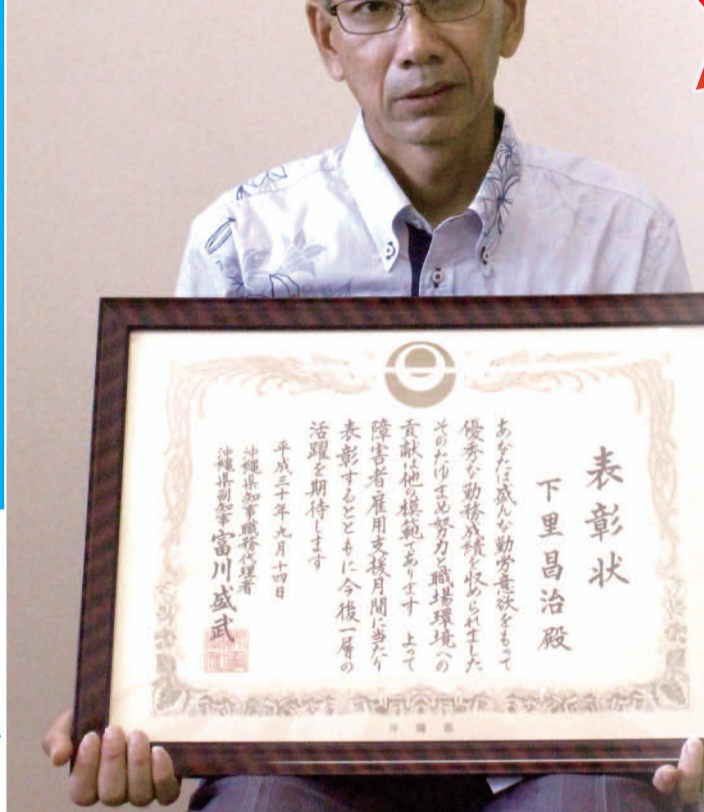 表彰状
下里昌治殿
あなたは盛んな勤労意欲をもって
優秀な勤務成績を収められました
そのたゆまぬ努力と職場環境への
貢献は他の模範であります 上って
障害者雇用支援月間に当たり
表彰するとともに今後一層の
活躍を期待します
平成三十年九月十四日
沖縄県知事職務代理者
沖縄県副知事 富川盛武
沖縄県